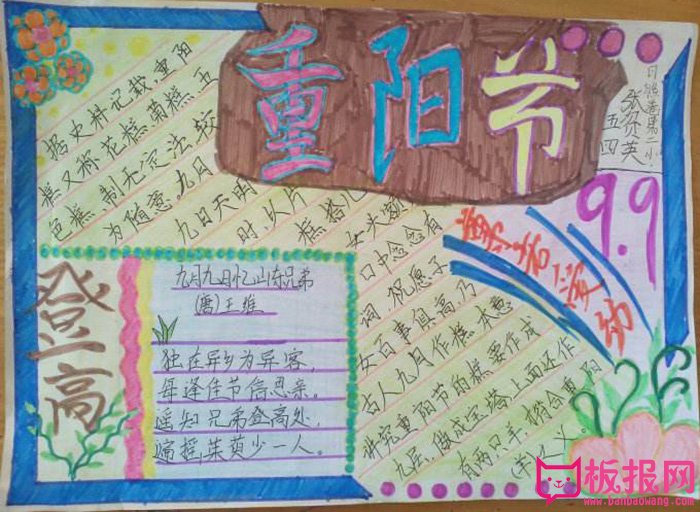 重阳节
张贺英
五四
9.9
尊老爱幼
据史料记载,重阳
糕又称花糕菊糕五
色糕,制无定法较
为随意。九月
九日天明
时,以片
糕搭儿
女头额
口中念念有
词,祝愿子
女百事俱高,乃
古人九月作糕本意
讲究重阳节的糕要作成
九层,像成宝塔,上面还作
有两只羊,稍合重阳
(羊)之义。
登高
九月九日忆山东兄弟
(唐)王维
独在异乡为异客,
每逢佳节倍思亲。
遥知兄弟登高处,
遍插茱萸少一人。
板报网
www.banbaowang.com